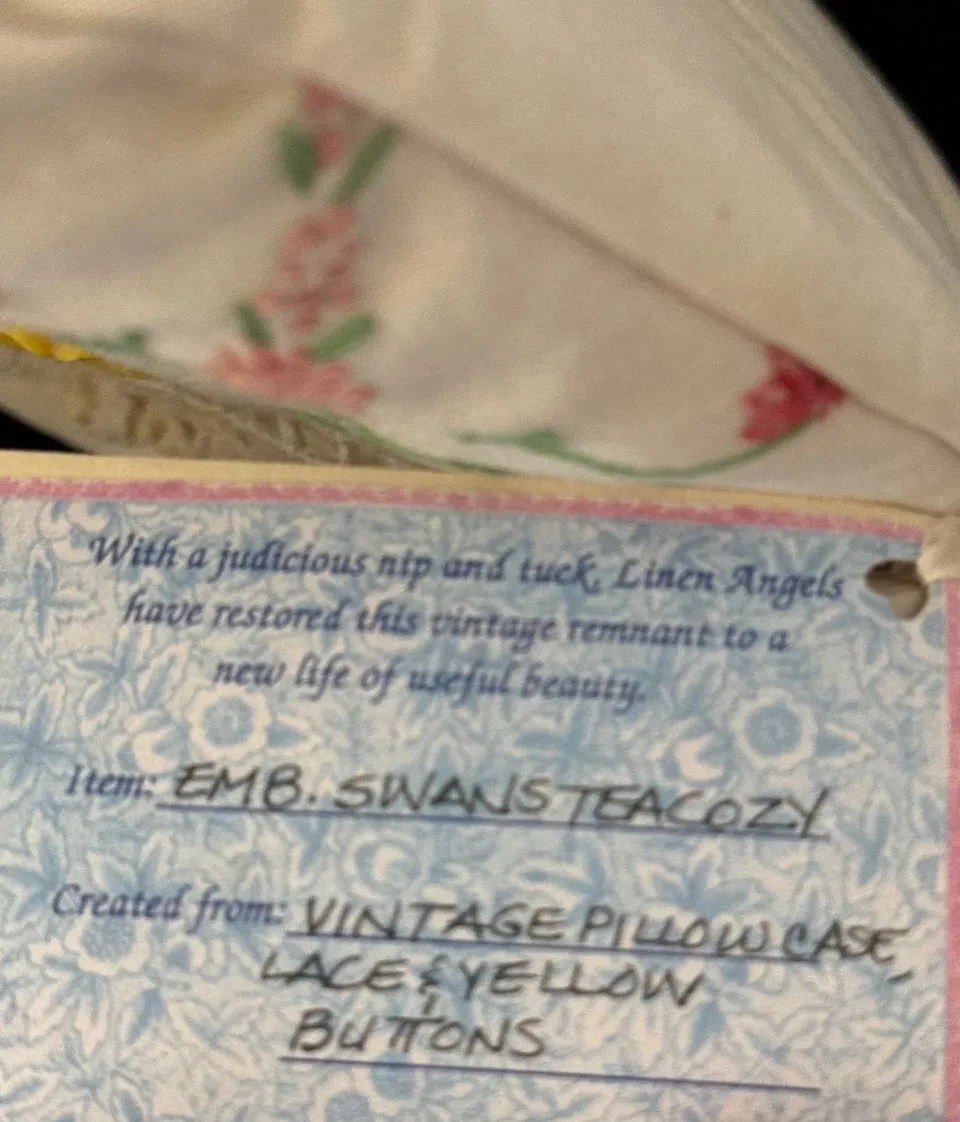 With a judicious nip and tuck, Linen Angels
have restored this vintage remnant to a
new life of useful beauty.
Item: EMB. SWANS TEACOZY
Created from: VINTAGE PILLOW CASE,
LACE & YELLOW
BUTTONS